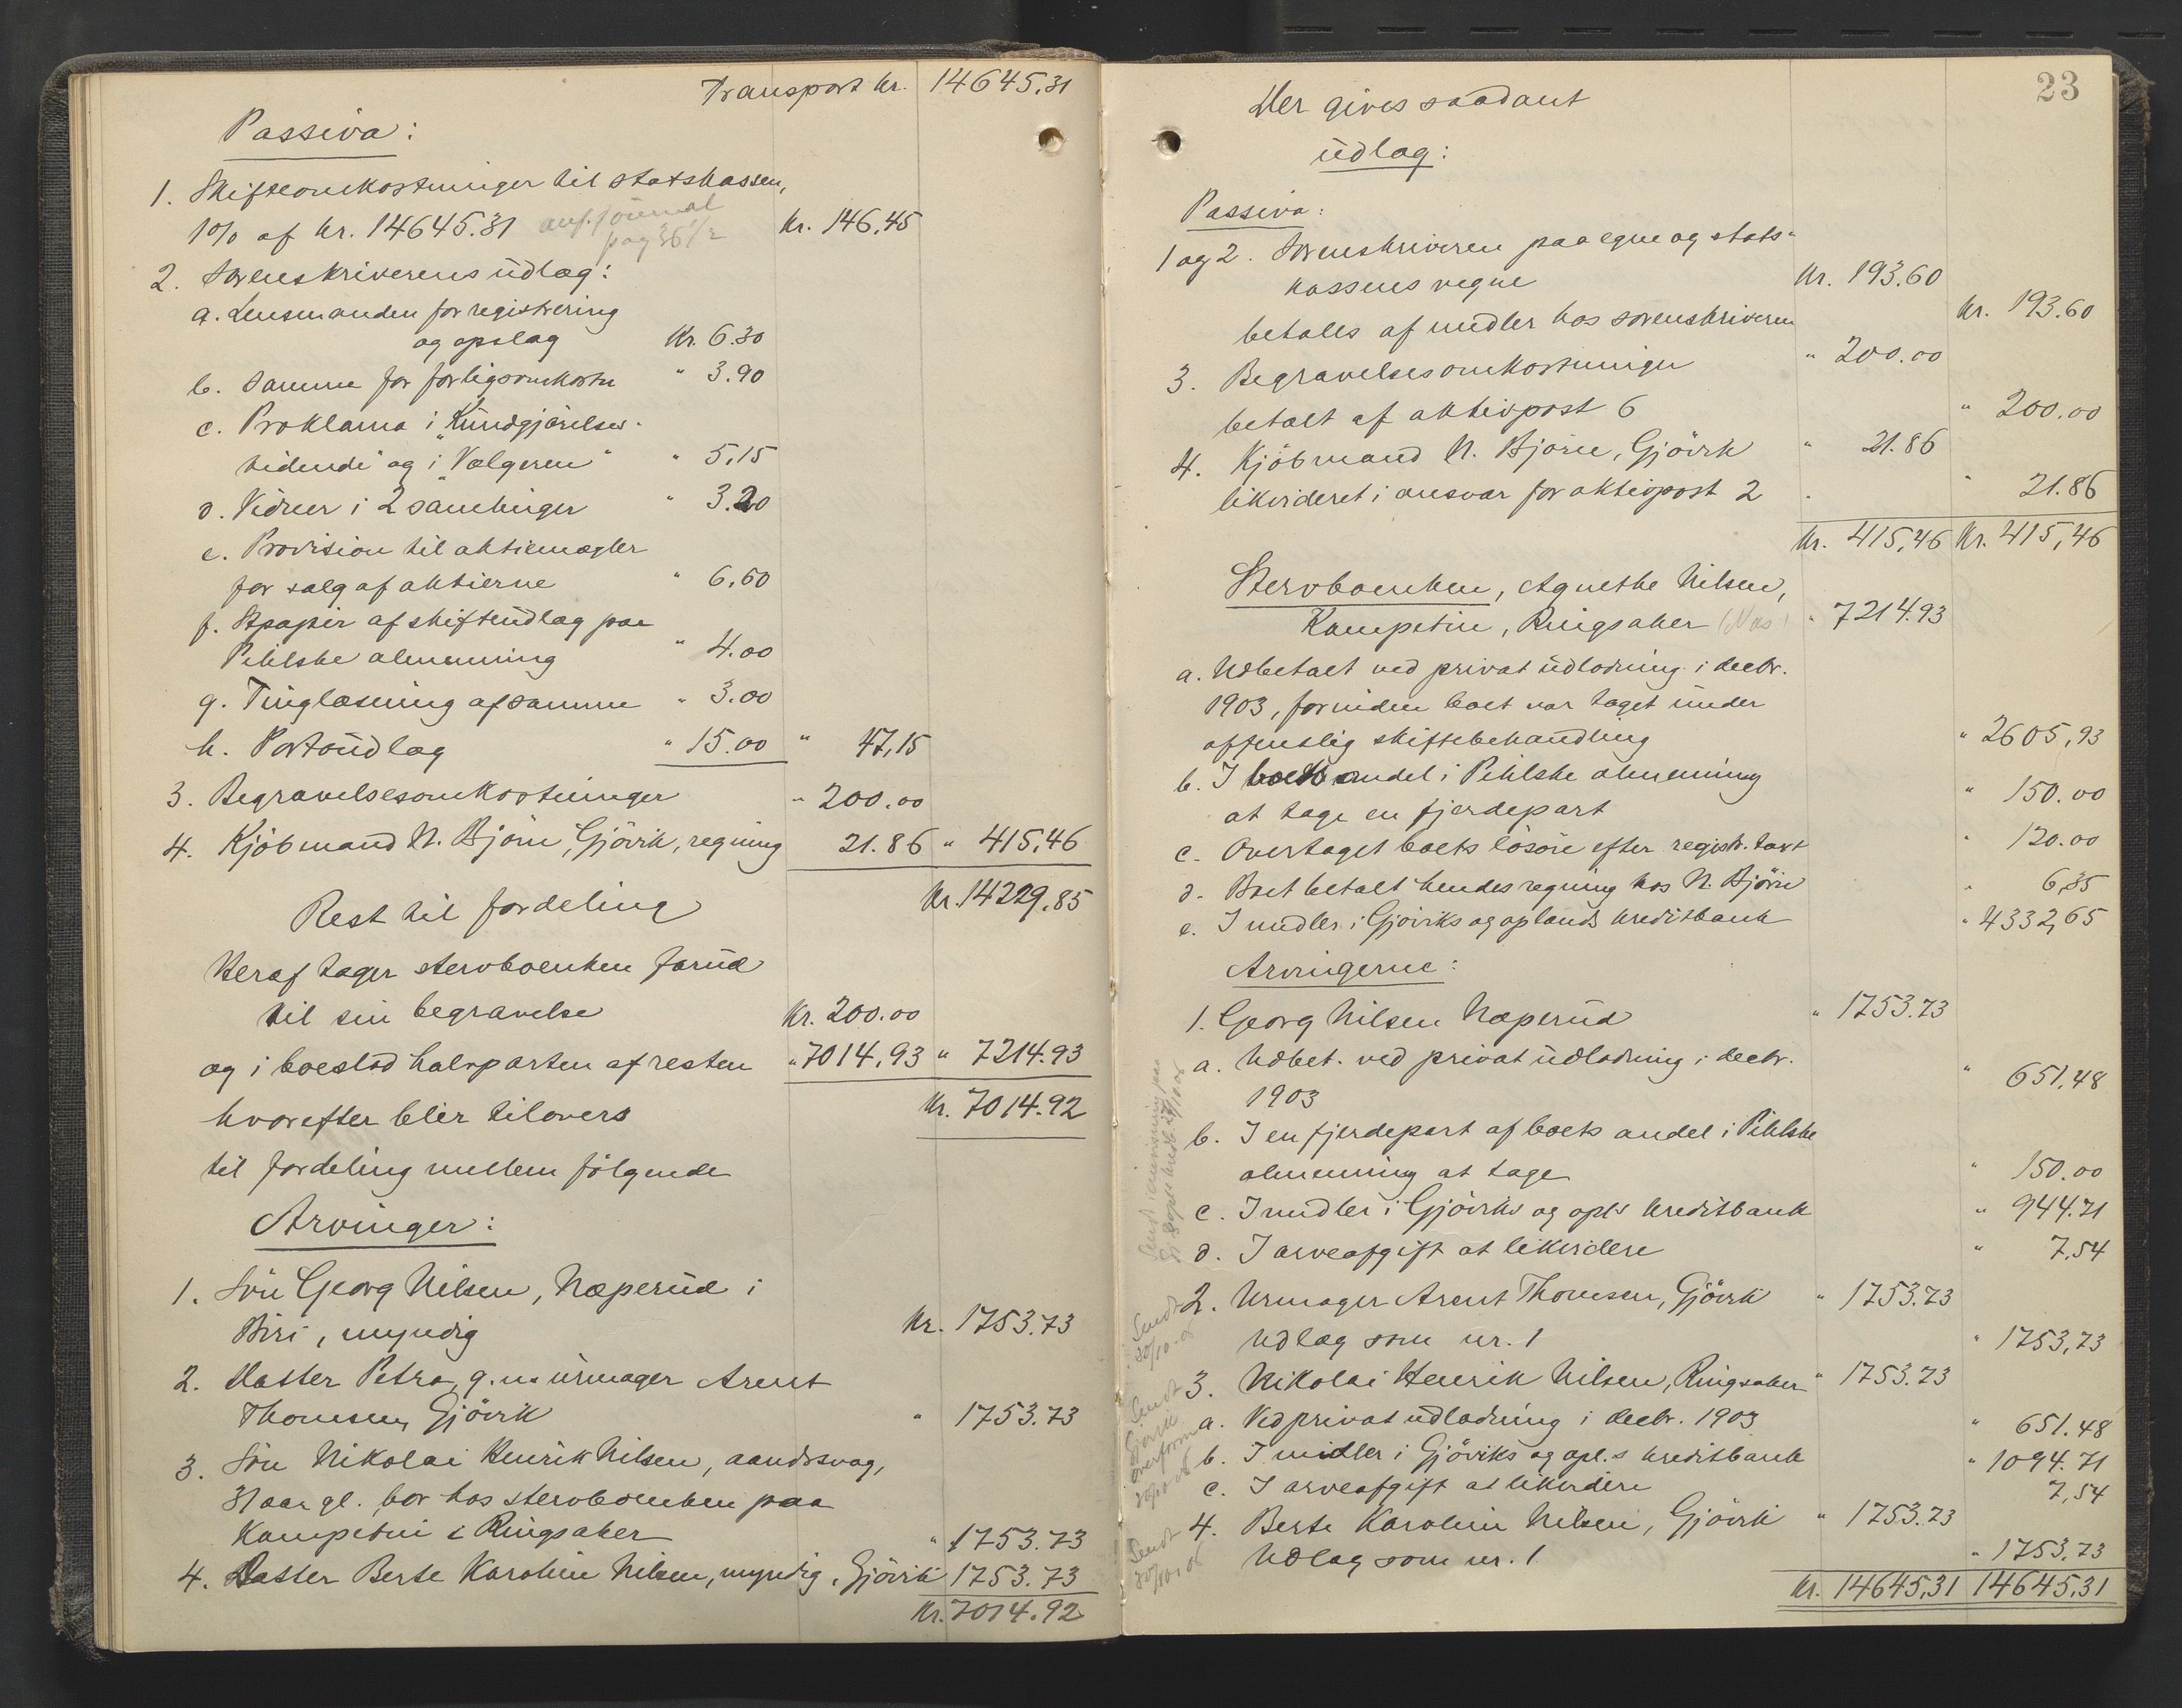 Transport kr. 14645.31
Passiva:
1. Skifteomkostninger til statskassen,
1% af kr. 14645.31 anf. journal kr. 146.45
pag 36 1/2
2. Sorenskriverens udlæg:
a. Lensmanden for registrering
og opslag Kr. 6.30
b. Samme for forligsomkostn " 3.90
c. Proklama i "Kundgjörelses-
tidende" og i "Vælgeren" " 5.15
d. Vidner i 2 samlinger " 3.20
e. Provision til aktiemægler
for salg af aktierne " 6.60
f. Stpapir af skifteudlæg paa
Pihlske almenning " 4.00
g. Tinglæsning af samme " 3.00
h. Portoudlæg " 15.00 " 47.15
3. Begravelsesomkostninger " 200.00
4. Kjöbmand N. Björn, Gjövik, regning 21.86 " 415.46
Rest til fordeling Kr. 14229.85
Heraf tager stervboenken forud
til sin begravelse Kr. 200.00
og i boeslod halvparten af resten " 7014.93 " 7214.93
hvorefter blir tilovers Kr. 7014.92
til fordeling mellem følgende
Arvinger:
1. Sön Georg Nilsen, Næperud i
Biri, myndig Kr. 1753.73
2. Datter Petra, g. m. urmager Arent
Thomsen, Gjövik " 1753.73
3. Sön Nikolai Henrik Nilsen, aandssvag,
31 aar gl. bor hos stervboenken paa
Kampetin i Ringsaker " 1753.73
4. Datter Berte Karolin Nilsen, myndig, Gjövik 1753.73
Kr. 7014.92
23
Der gives saadant
udlæg:
Passiva:
1 og 2. Sorenskriveren paa egne og stats-
kassens vegne Kr. 193.60
betales af midler hos sorenskriveren Kr. 193.60
3. Begravelsesomkostninger " 200.00
betalt af aktivpost 6 " 200.00
4. Kjöbmand N. Björn, Gjövik " 21.86
likvideret i ansvar for aktivpost 2 " 21.86
Kr. 415,46 Kr. 415,46
Stervboenken, Agnethe Nilsen,
Kampetin, Ringsaker (Nes) " 7214.93
a. Udbetalt ved privat udlodning i decbr.
1903, forinden boet var taget under
offentlig skiftebehandling " 2605,93
b. I boets andel i Pihlske almenning
at tage en fjerdepart " 150.00
c. Overtaget boets lösöre efter registr. taxt " 120.00
d. Boet betalt hendes regning hos N. Björn " 6,35
e. I midler i Gjöviks og oplands kreditbank " 4332,65
Arvingerne:
1. Georg Nilsen Næperud " 1753.73
a. Udbet. ved privat udlodning i decbr.
1903 " 651,48
b. I en fjerdepart af boets andel i Pihlske
almenning at tage " 150.00
c. I midler i Gjöviks og opls kreditbank " 944.71
d. I arveafgift at likvidere " 7.54
2. Urmager Arent Thomsen, Gjövik " 1753.73
Udlæg som nr. 1 " 1753,73
Sendt
3. Nikolai Henrik Nilsen, Ringsaker " 1753.73
a. Ved privat udlodning i decbr. 1903 " 651.48
b. I midler i Gjöviks og opl.s kreditbank " 1094.71
c. I arveafgift at likvidere 7,54
Sendt
Gjövik
overform
4. Berte Karolin Nilsen, Gjövik " 1753.73
Udlæg som nr. 1 " 1753,73
Sendt
Kr. 14645,31 14645,31